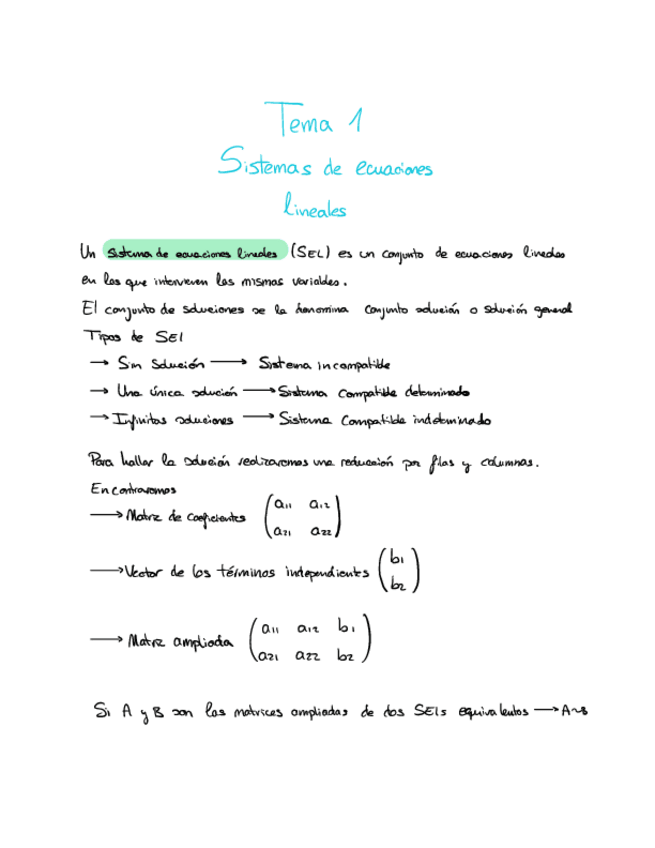 Tema 1
Sistemas de ecuaciones
lineales
Un sistema de ecuaciones lineales (SEL) es un conjunto de ecuaciones lineales
en las que intervienen las mismas variables.
El conjunto de soluciones se la denomina conjunto solución o solución general
Tipos de SEL
→ Sin Solución → Sistema incompatible
→ Una única solución → Sistema compatible determinado
→ Infinitas soluciones → Sistema Compatible indeterminado
Para hallar la solución realizaremos una reducción por filas y columnas.
Encontraremos
→ Matriz de coeficientes (a11 a12
a21 a22)
→ Vector de los términos independientes (b1
b2)
→ Matriz ampliada (a11 a12 b1
a21 a22 b2)
Si A y B son las matrices ampliadas de dos SELs equivalentes → A~B